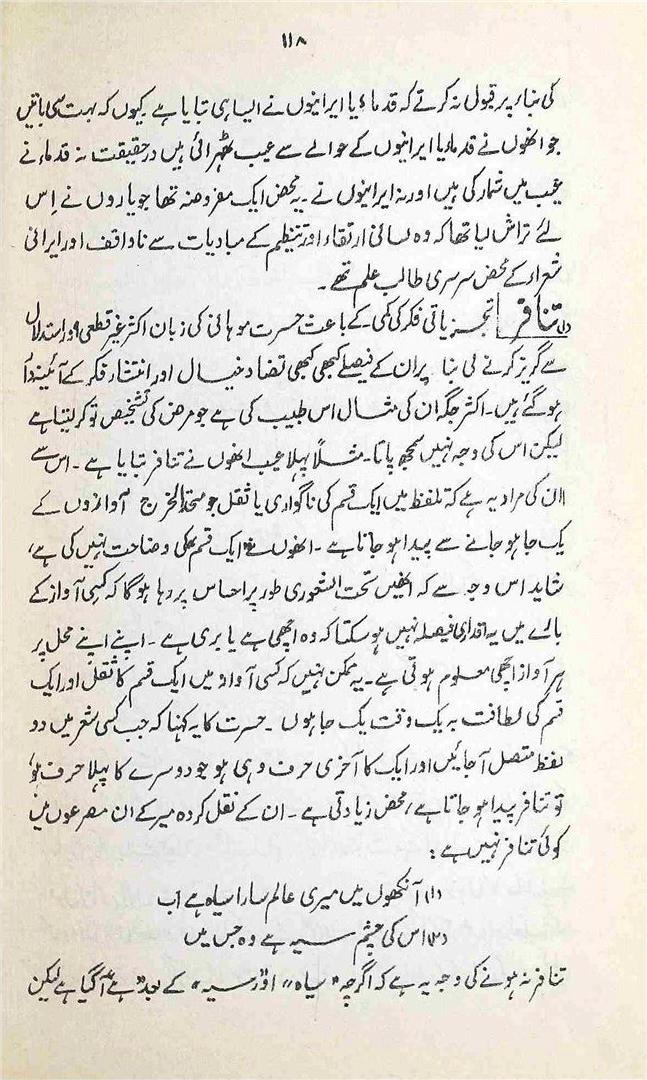 ۱۱۸
کی بناء پر قبول نہ کرتے کہ قدماء یا ایرانیوں نے ایسا ہی بتایا ہے۔ کیوں کہ بہت سی باتیں
جو انھوں نے قدماء یا ایرانیوں کے حوالے سے عیب ٹھہرائی ہیں درحقیقت نہ قدماء نے
عیب میں شمار کی ہیں اور نہ ایرانیوں نے۔ یہ محض ایک مفروضہ تھا جو یاروں نے اِس
لئے تراش لیا تھا کہ وہ لسانی ارتقاء اور تنظیم کے مبادیات سے ناواقف اور ایرانی
شعراء کے محض سرسری طالب علم تھے۔
(۱) تنافر تجزیاتی فکر کی کمی کے باعث حسرت موہانی کی زبان اکثر غیر قطعی اور استدلال
سے گریز کرنے کی بنا پر ان کے فیصلے کبھی کبھی تضاد خیال اور انتشار فکر کے آئینہ دار
ہو گئے ہیں۔ اکثر جگہ ان کی مثال اس طبیب کی ہے جو مرض کی تشخیص تو کر لیتا ہے
لیکن اس کی وجہ نہیں سمجھ پاتا۔ مثلاً پہلا عیب انھوں نے تنافر بتایا ہے۔ اس سے
ان کی مراد یہ ہے کہ تلفظ میں ایک قسم کی ناگواری یا ثقل جو متحد المخرج آوازوں کے
یک جا ہو جانے سے پیدا ہو جاتا ہے۔ انھوں نے ایک قسم کی وضاحت نہیں کی ہے،
شاید اس وجہ سے کہ انھیں تحت الشعوری طور پر احساس رہا ہو گا کہ کسی آواز کے
بارے میں یہ اقداری فیصلہ نہیں ہو سکتا کہ وہ اچھی ہے یا بری ہے۔ اپنے اپنے محل پر
ہر آواز اچھی معلوم ہوتی ہے۔ یہ ممکن نہیں کہ کسی آواز میں ایک قسم کا ثقل اور ایک
قسم کی لطافت بہ یک وقت یک جا ہوں۔ حسرت کا یہ کہنا کہ جب کسی شعر میں دو
لفظ متصل آ جائیں اور ایک کا آخری حرف وہی ہو جو دوسرے کا پہلا حرف ہو،
تو تنافر پیدا ہو جاتا ہے، محض زیادتی ہے۔ ان کے نقل کردہ میر کے ان مصرعوں میں
کوئی تنافر نہیں ہے:
(۱) آنکھوں میں میری عالم سارا سیاہ ہے اب
(۲) اس کی چشم سیہ ہے وہ جس میں
تنافر نہ ہونے کی وجہ یہ ہے کہ اگرچہ "سیاہ" اور "سیہ" کے بعد "ہے" آ گیا ہے لیکن